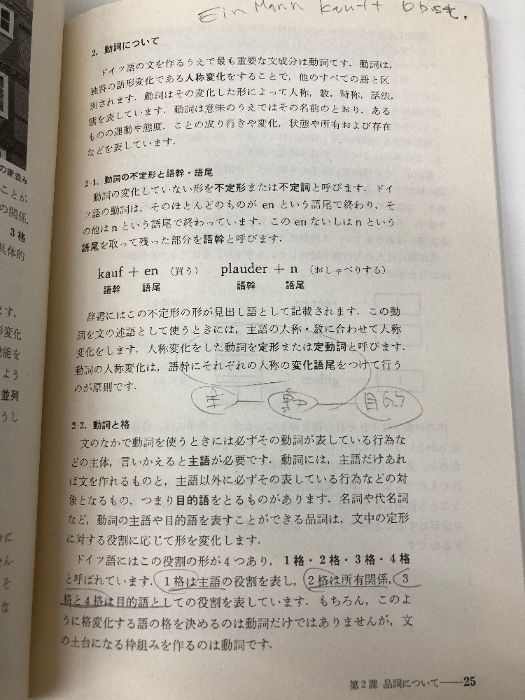 Ein Mann kauft Obst.
2. 動詞について
ドイツ語の文を作るうえで最も重要な文成分は動詞です．動詞は，
独特の語形変化である人称変化をすることで，他のすべての語と区
別されます．動詞はその変化した形によって人称，数，時称，話法，
態を表しています．動詞は意味のうえではその名前のとおり，ある
ものの運動や態度，ことの成り行きや変化，状態や所有および存在
などを表しています．
2-1. 動詞の不定形と語幹・語尾
動詞の変化していない形を不定形または不定詞と呼びます．ドイ
ツ語の動詞は，そのほとんどのものが en という語尾で終わり，そ
の他は n という語尾で終わっています．この en ないしは n という
語尾を取って残った部分を語幹と呼びます．
kauf + en （買う） plauder + n （おしゃべりする）
語幹 語尾 語幹 語尾
辞書にはこの不定形の形が見出し語として記載されます．この動
詞を文の述語として使うときには，主語の人称・数に合わせて人称
変化をします．人称変化をした動詞を定形または定動詞と呼びます．
動詞の人称変化は，語幹にそれぞれの人称の変化語尾をつけて行う
のが原則です．
主 動 目的
2-2. 動詞と格
文のなかで動詞を使うときには必ずその動詞が表している行為な
どの主体，言いかえると主語が必要です．動詞には，主語だけあれ
ば文を作れるものと，主語以外に必ずその表している行為などの対
象となるもの，つまり目的語をとるものがあります．名詞や代名詞
など，動詞の主語や目的語を表すことができる品詞は，文中の定形
に対する役割に応じて形を変化します．
ドイツ語にはこの役割の形が4つあり，1格・2格・3格・4格
と呼ばれています．1格は主語の役割を表し，2格は所有関係，3
格と4格は目的語としての役割を表しています．もちろん，このよ
うに格変化する語の格を決めるのは動詞だけではありませんが，文
の土台になる枠組みを作るのは動詞です．
第2課 品詞について——25